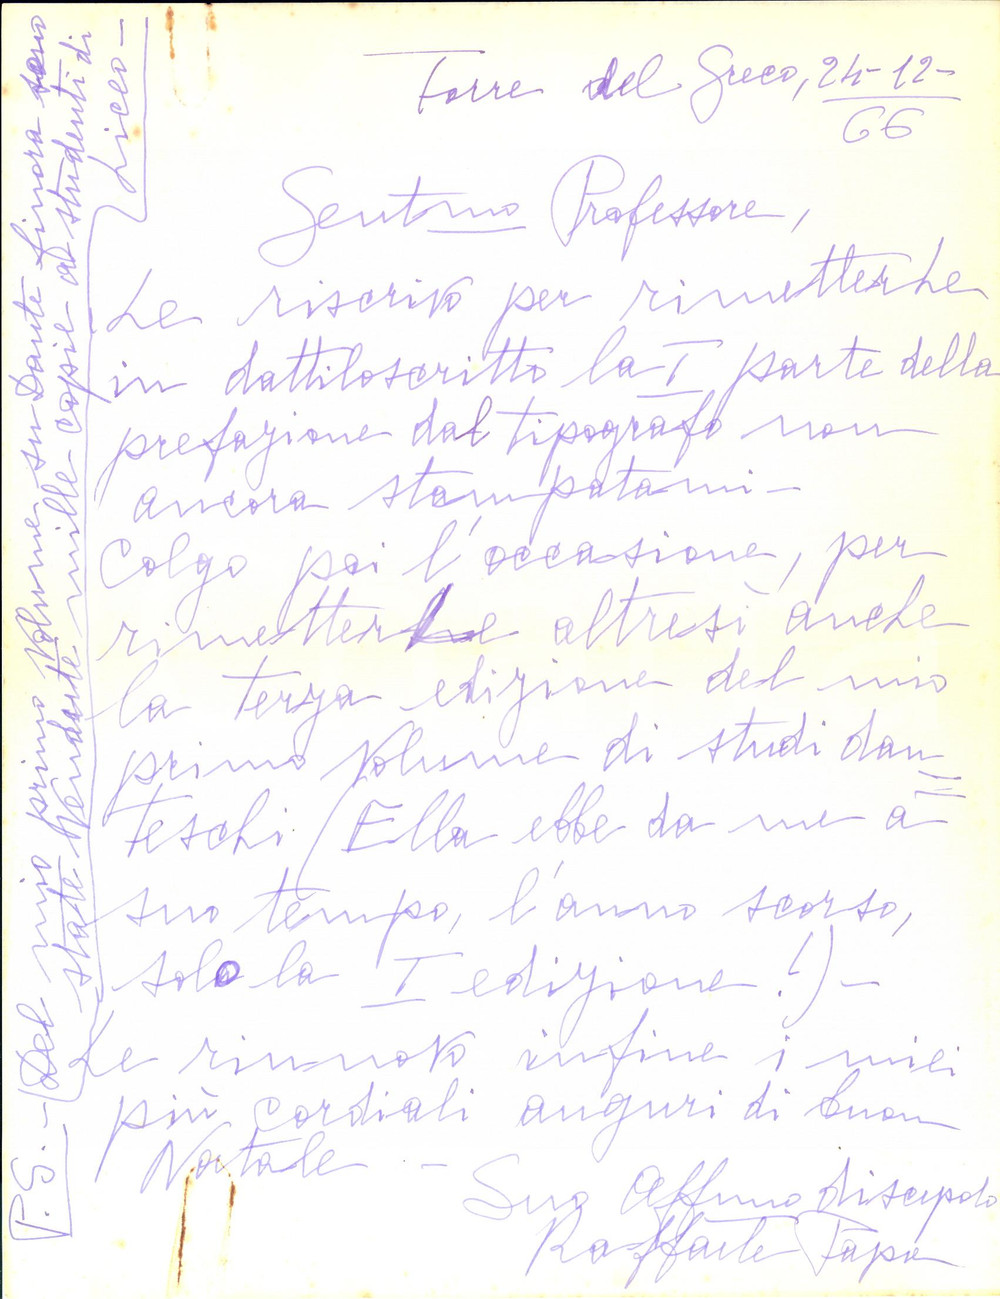 Torre del Greco, 24-12-
66
Gent.mo Professore,
Le riscrivo per rimetterLe
in dattiloscritto la I parte della
prefazione dal tipografo non
ancora stampatami -
Colgo poi l'occasione, per
rimetterLe altresì anche
la terza edizione del mio
primo volume di studi dan=
teschi (Ella ebbe da me a
suo tempo, l'anno scorso,
solo la I edizione!) -
Le rinnovo infine i miei
più cordiali auguri di buon
Natale -
Suo Aff.mo discepolo
Raffaele Papa
P.S. - (Del mio primo volume su Dante finora sono
state vendute mille copie ad studenti di
Liceo -